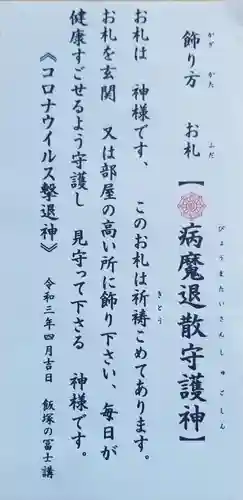 飾り方　お札【病魔退散守護神】
かざ かた ふだ びょうまたいさんしゅごしん
お札は　神様です、　このお札は祈祷こめてあります。
きとう
お札を玄関　又は部屋の高い所に飾り下さい、毎日が
健康すごせるよう守護し　見守って下さる　神様です。
《コロナウイルス撃退神》　令和三年四月吉日　飯塚の冨士講